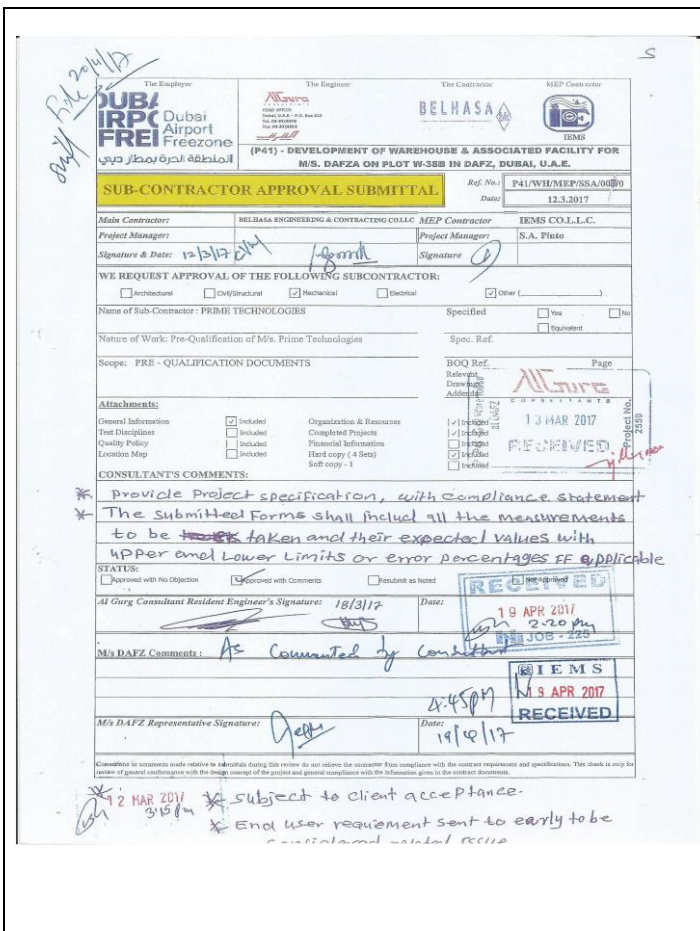 S
File 20/4/17
The Employer The Engineer The Contractor MEP Contractor
DUBAI AIRPORT FREEZONE
Dubai Airport Freezone
المنطقة الحرة بمطار دبي
AlGurg
CONSULTANTS
HEAD OFFICE:
BELHASA
IEMS
(P41) - DEVELOPMENT OF WAREHOUSE & ASSOCIATED FACILITY FOR
M/S. DAFZA ON PLOT W-38B IN DAFZ, DUBAI, U.A.E.
SUB-CONTRACTOR APPROVAL SUBMITTAL
Ref. No.: P41/WH/MEP/SSA/
Date: 12.3.2017
Main Contractor: BELHASA ENGINEERING & CONTRACTING CO.LLC MEP Contractor IEMS CO.L.L.C.
Project Manager: Project Manager: S.A. Pinto
Signature & Date: 12/3/17 Signature
WE REQUEST APPROVAL OF THE FOLLOWING SUBCONTRACTOR:
Architectural Civil/Structural Mechanical Electrical Other (__________)
Name of Sub-Contractor : PRIME TECHNOLOGIES Specified Yes No
Equivalent
Nature of Work: Pre-Qualification of M/s. Prime Technologies Spec. Ref.
Scope: PRE - QUALIFICATION DOCUMENTS BOQ Ref. Page
Relevant
Drawings
Addenda
AlGurg
CONSULTANTS
13 MAR 2017
RECEIVED
Project No.
2559
Attachments:
General Information Included Organization & Resources Included
Test Discipline Included Completed Projects Included
Quality Policy Included Financial Information Included
Location Map Included Hard copy ( 4 Sets) Included
Soft copy - 1 Included
CONSULTANT'S COMMENTS:
* Provide Project specification, with compliance statement
* The submitted Forms shall includ all the measurements
to be taken and their expected values with
upper and Lower Limits or error percentages IF applicable
STATUS:
Approved with No Objection Approved with Comments Resubmit as Noted Not Approved
Al Gurg Consultant Resident Engineer's Signature: 18/3/17 Date:
RECEIVED
19 APR 2017
2:20 pm
JOB - 225
M/s DAFZ Comments : As Commented by Consultant
IEMS
19 APR 2017
RECEIVED
4:45PM
M/s DAFZ Representative Signature: Date:
19/4/17
Corrections or comments made relative to submittals during this review do not relieve the contractor from compliance with the contract requirement and specifications. This check is only for
review of general conformance with the design concept of the project and general compliance with the information given in the contract documents.
12 MAR 2017
3:15 pm
* Subject to client acceptance.
* End user requiement sent to early to be